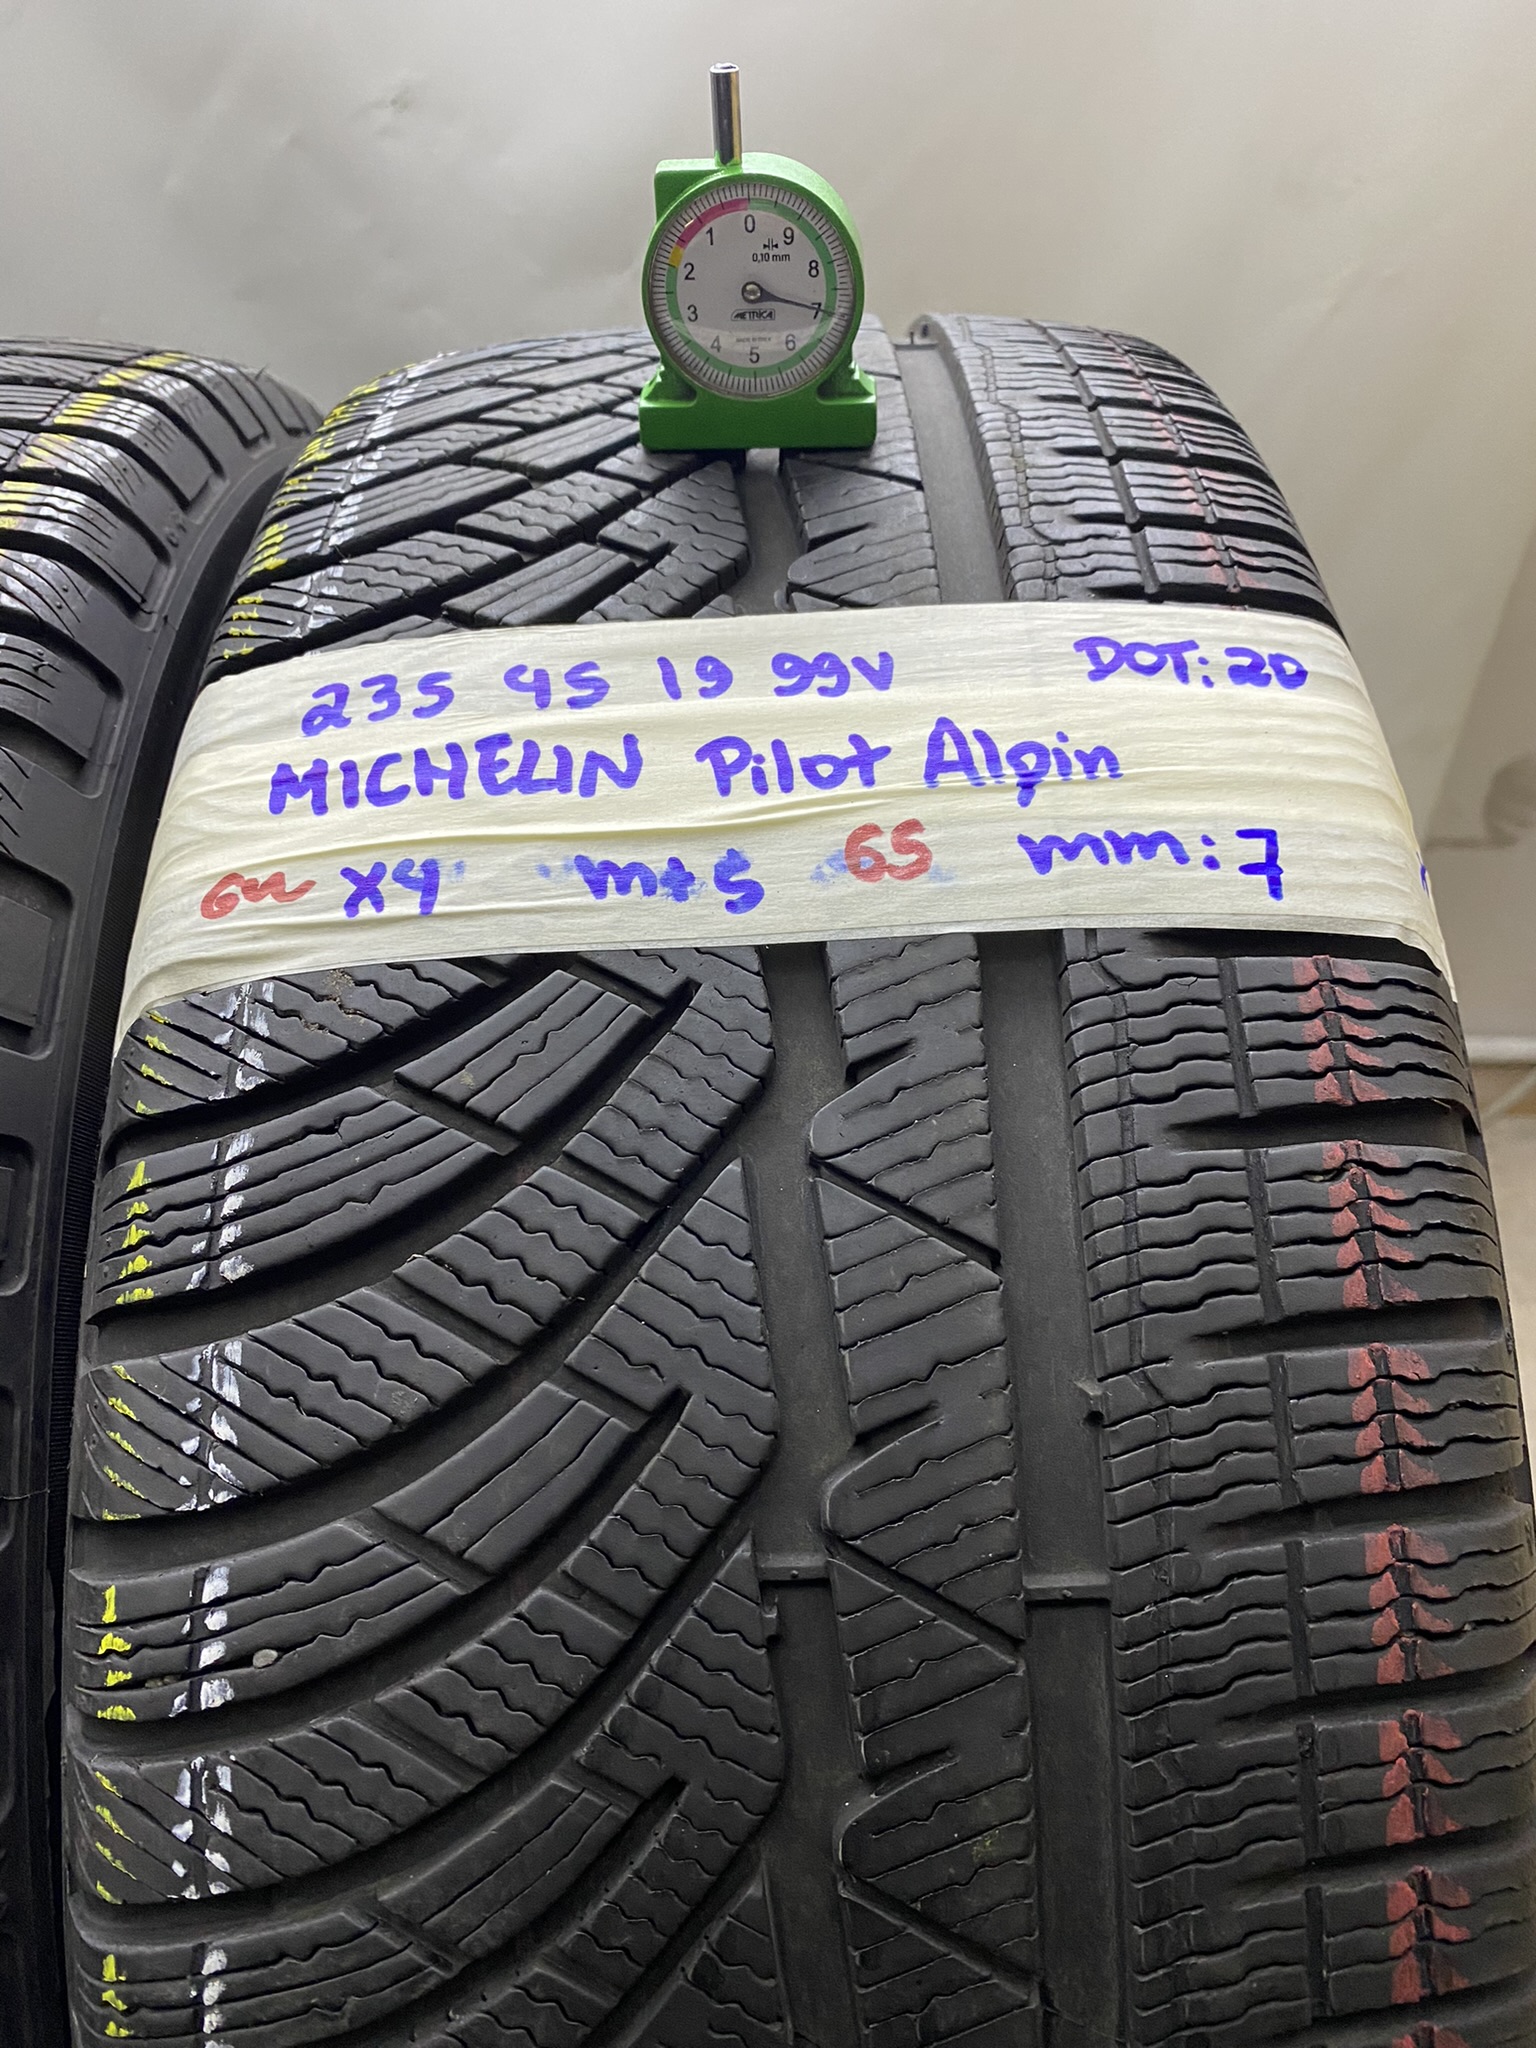 0
1
9
0,10 mm
2
8
3
METRICA
7
4
5
6
235 45 19 99V DOT: 20
MICHELIN Pilot Alpin
X4 m+s 65 mm: 7